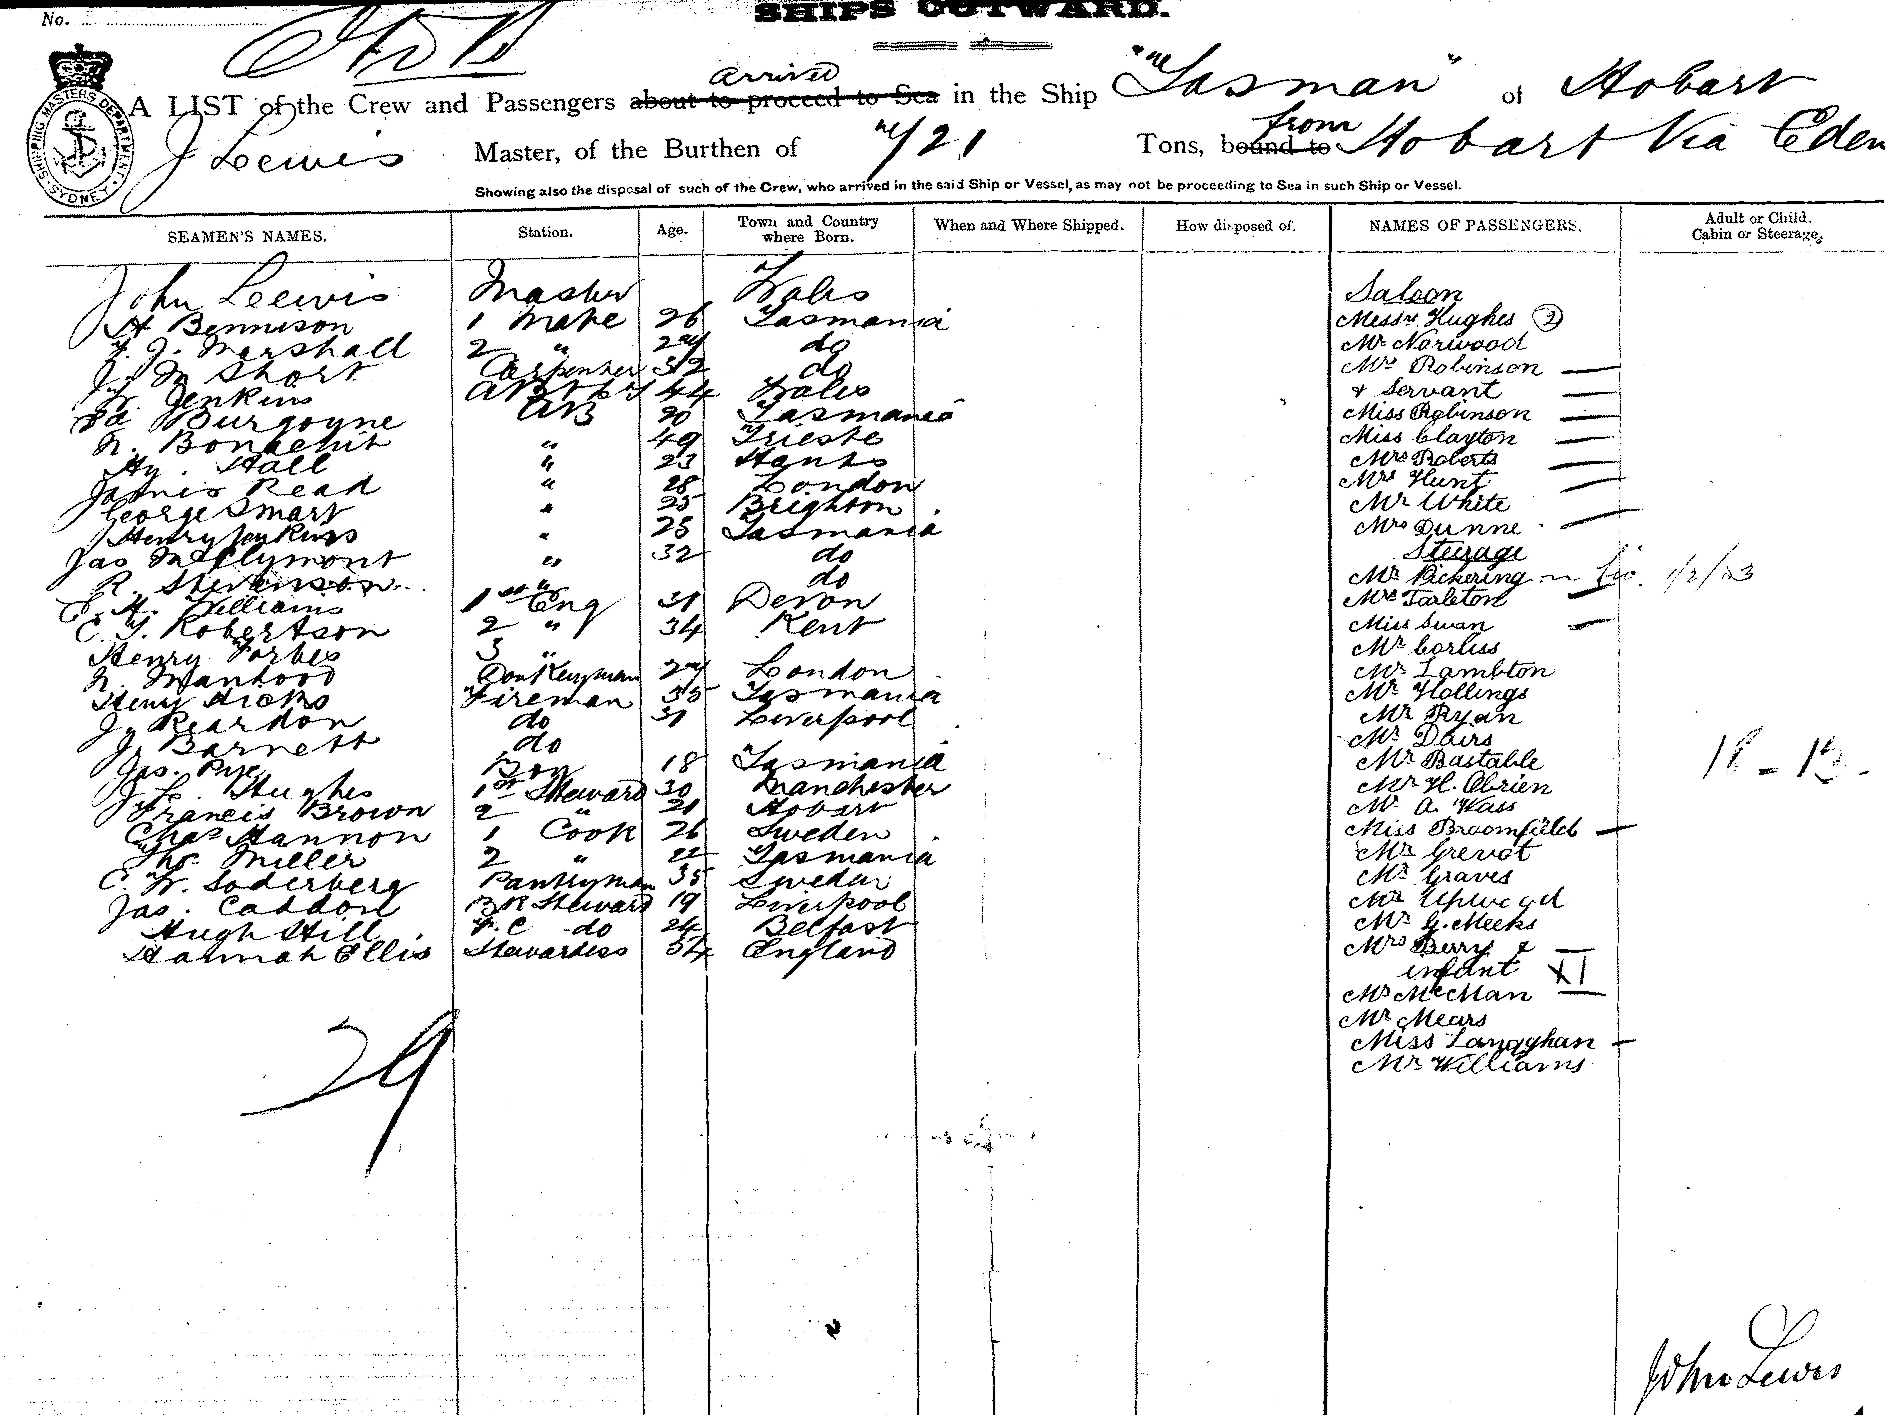 No.
SHIPS OUTWARD.
A LIST of the Crew and Passengers about to proceed to Sea arrived in the Ship "Tasman" of Hobart
J Lewis Master, of the Burthen of Tons, bound to from Hobart Via Eden
SHIPPING MASTERS DEPARTMENT SYDNEY
Showing also the disposal of such of the Crew, who arrived in the said Ship or Vessel, as may not be proceeding to Sea in such Ship or Vessel.
SEAMEN'S NAMES. Station. Age. Town and Country where Born. When and Where Shipped. How disposed of. NAMES OF PASSENGERS. Adult or Child. Cabin or Steerage.
John Lewis Master Wales
A Bennison 1 Mate 26 Tasmania
J. Marshall 2 " 27 do
Short Carpenter 32 do
Jenkins 44 Wales
Ed Burgoyne AB 20 Tasmania
" 49 Trieste
Hy. Hall " 23 Hants
James Read " 28 London
George Smart " 25 Brighton
Henry Jenkins " 25 Tasmania
Jas McClymont " 32 do
R. Stevenson " do
E. H. Williams 1st Eng 31 Devon
C. G. Robertson 2 " 34 Kent
Henry Forbes 3 "
N. Manhood Donkeyman 27 London
Henry Dicks Fireman 35 Tasmania
J. Reardon do 31 Liverpool
J. Barnett do
Jas. Pye Boy 18 Tasmania
J. L. Hughes 1st Steward 30 Manchester
Francis Brown 2 " 21 Hobart
Chas Hannon 1 Cook 26 Sweden
Thos. Miller 2 " 22 Tasmania
C. W. Soderberg Pantryman 35 Sweden
Jas. Caddon BR Steward 19 Liverpool
Hugh Hill F.C do 24 Belfast
Hannah Ellis Stewardess 54 England
29
Saloon
Messrs Hughes 2
Mr Norwood
Mrs Robinson
& Servant
Miss Robinson
Miss Clayton
Mrs Roberts
Mrs Hunt
Mr White
Mrs Dunne
Steerage
Mr Pickering
Mrs Tarleton
Miss Swan
Mr Corliss
Mr Lambton
Mr Hollings
Mr Ryan
Mr Davis
Mr Bastable
Mr H. Obrien
Mr A. Wass
Miss Broomfield
Mr Grevot
Mr Graves
Mr Upwood
Mr G. Meeks
Mrs Berry &
infant
Mr McMan
Mr Mears
Miss Lanaghan
Mr Williams
18 - 13
John Lewis